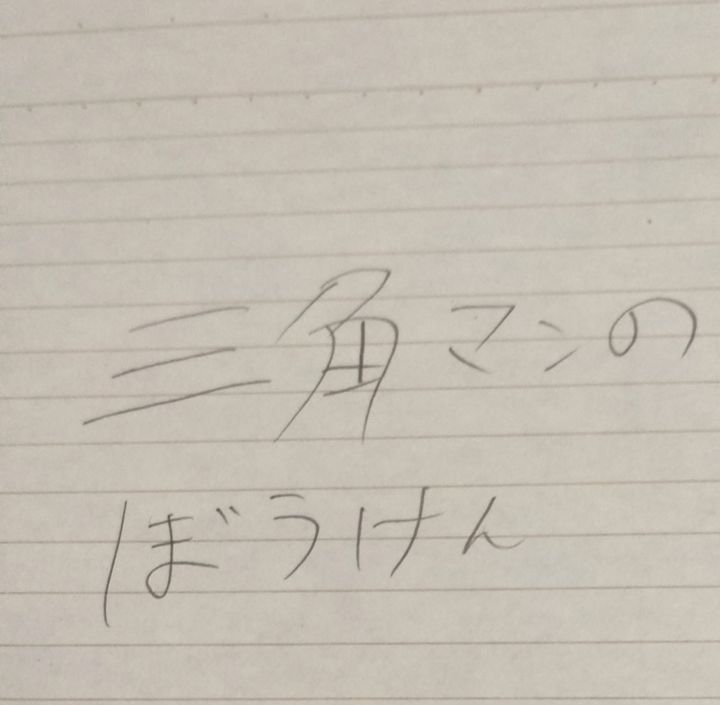 三角マンの
ぼうけん